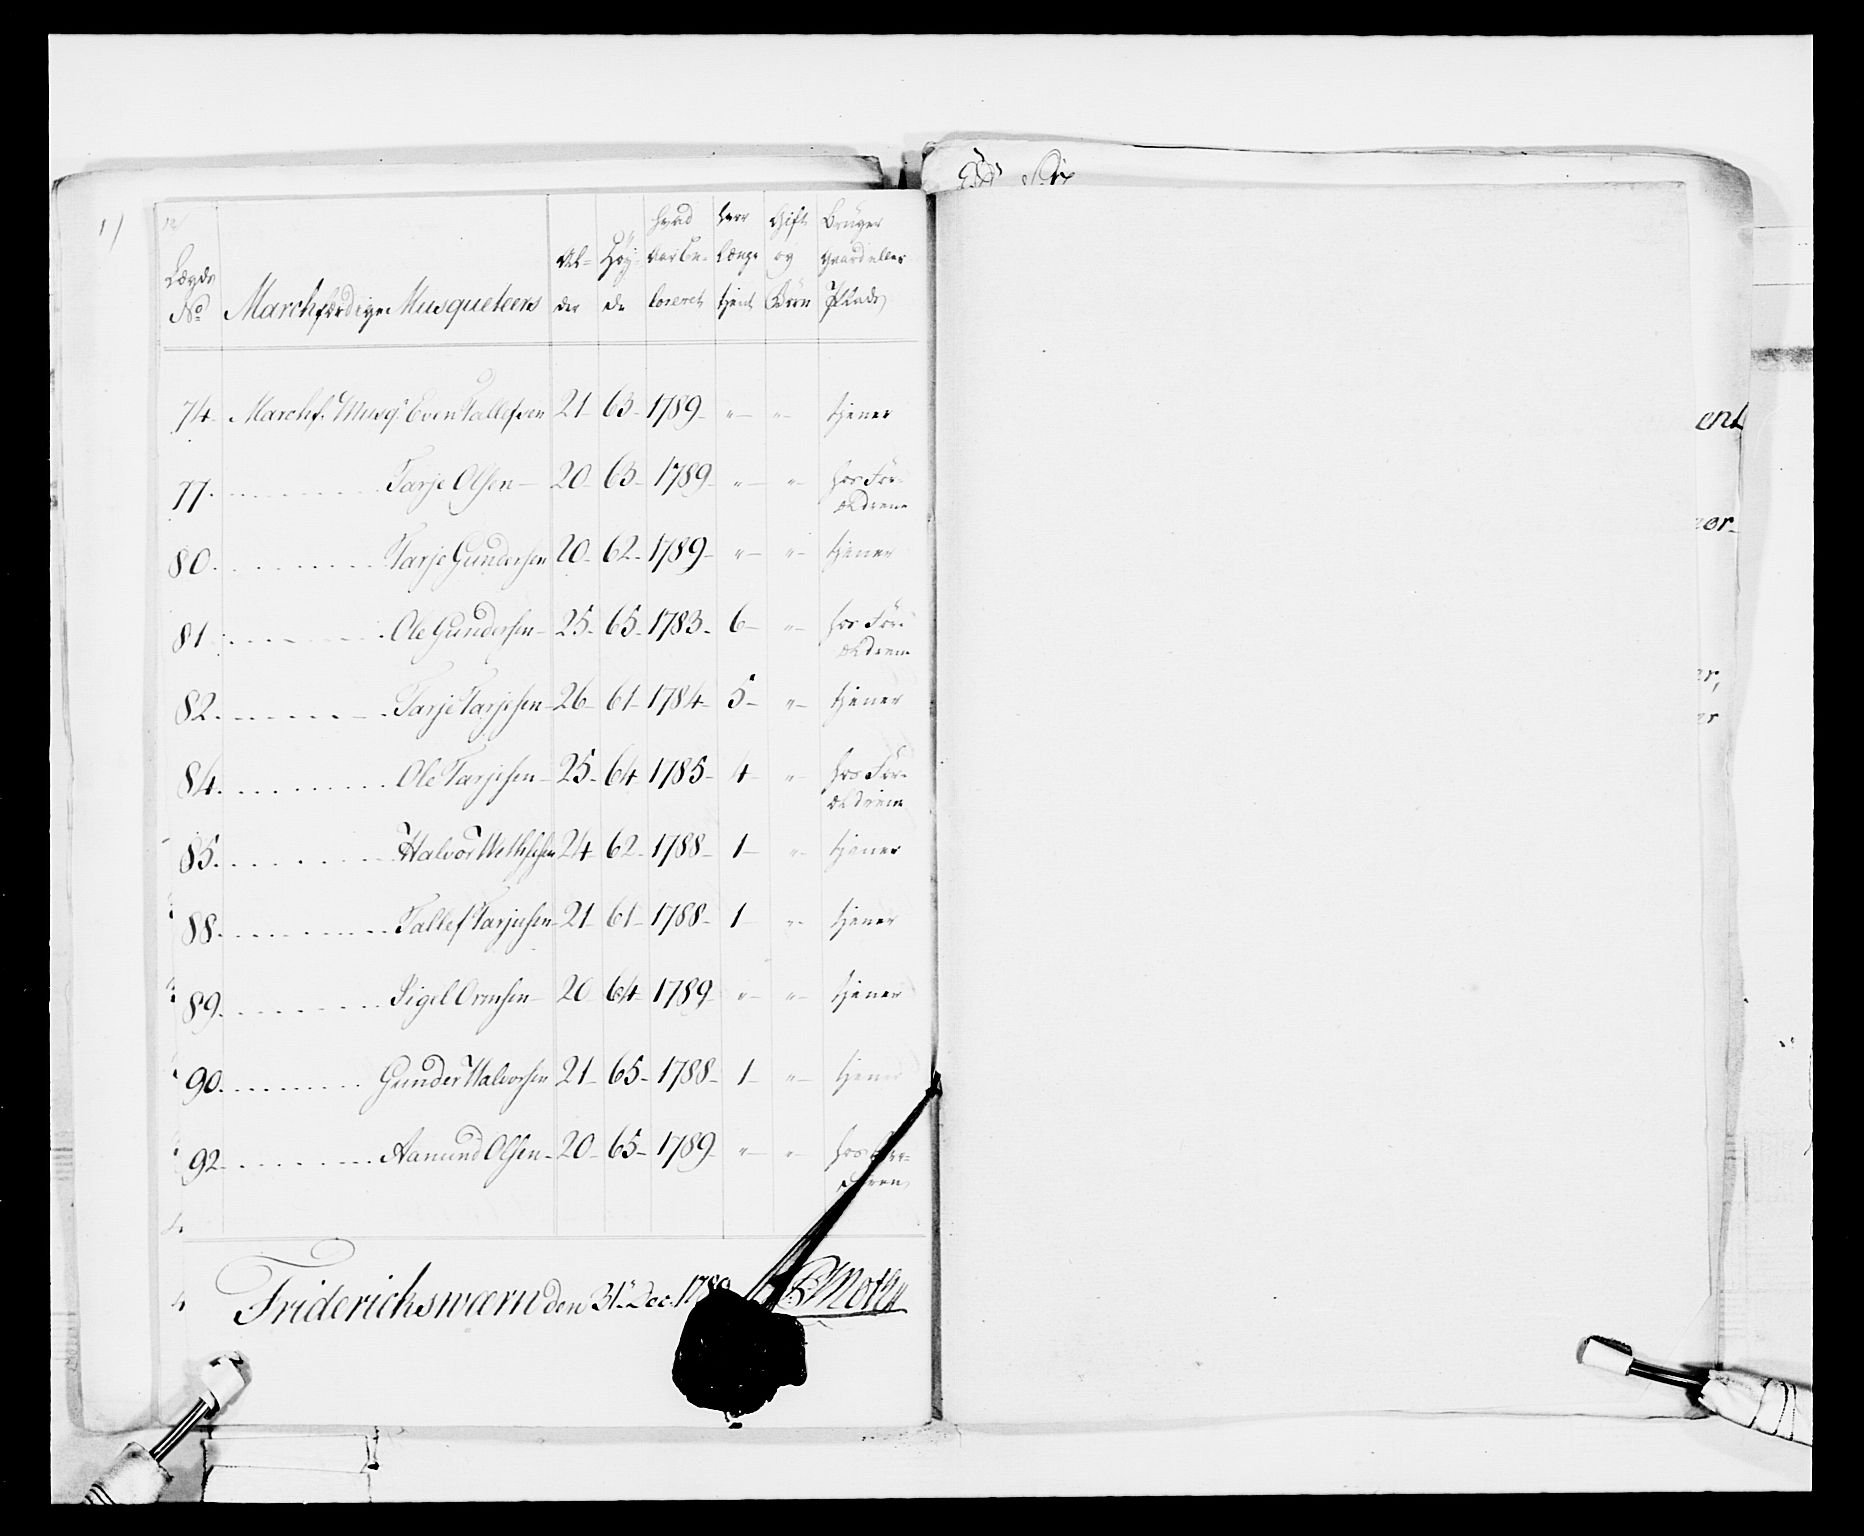 Lægds No | Marchfærdige Musqueteers | Alder | Høyde | hvad Aar Enroleret | hvor længe tjent | Gift og Børn | Bruger Gaard eller Plads
74. Marchf. Musq. Even Tallefsen 21 63 1789 " " tjener
77. Tarje Olsen 20 63 1789 " " hos Forældrene
80. Tarje Gundersen 20 62 1789 " " tjener
81. Ole Gundersen 25 65 1783 6 " hos Forældrene
82. Tarje Tarjesen 26 61 1784 5 " tjener
84. Ole Tarjesen 25 64 1785 4 " hos Forældrene
85. Halvor 24 62 1788 1 " tjener
88. Tallef Tarjesen 21 61 1788 1 " tjener
89. Sigel Ormsen 20 64 1789 " " tjener
90. Gunder Halvorsen 21 65 1788 1 " tjener
92. Aamund Olsen 20 65 1789 " " hos
Friderichswærn den 31te Dec. 1789 Moth
ent
vor
er,
er